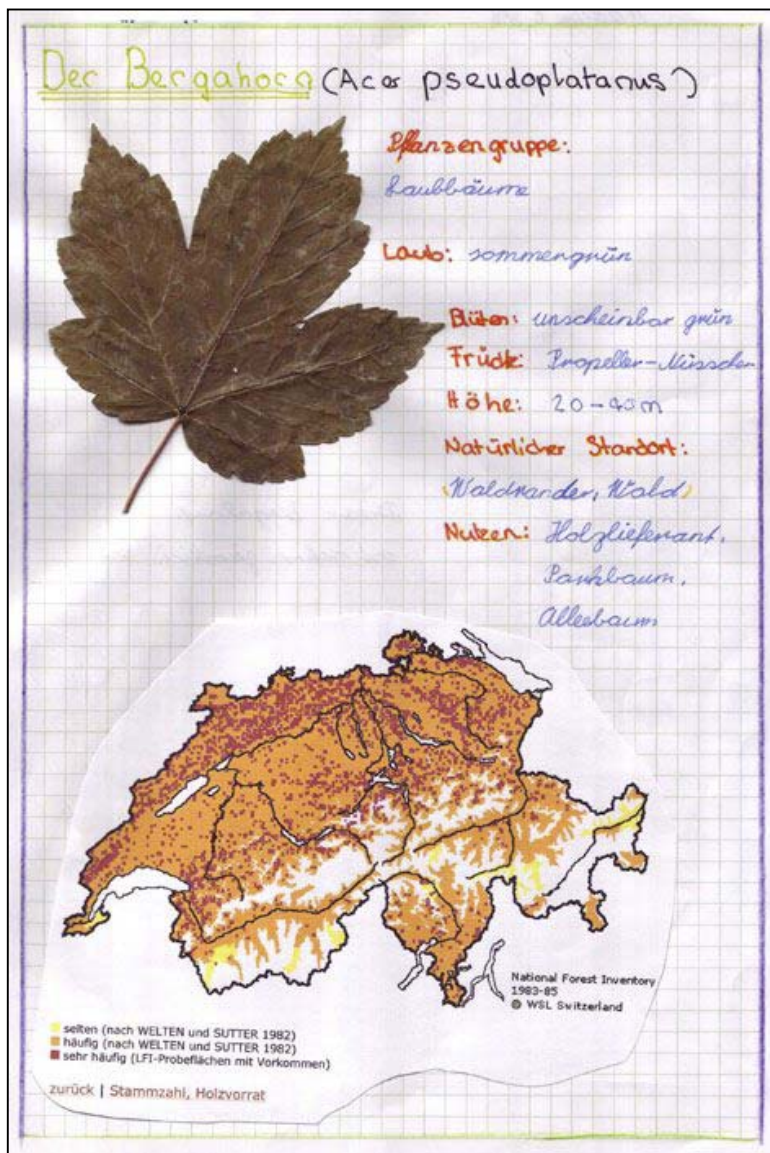 Der Bergahorn (Acer pseudoplatanus)
Pflanzengruppe:
Laubbäume
Laub: sommergrün
Blüten: unscheinbar grün
Früchte: Propeller-Nüsschen
Höhe: 20-40m
Natürlicher Standort:
(Waldränder, Wald)
Nutzen: Holzlieferant,
Parkbaum,
Alleebaum
National Forest Inventory
1983-85
© WSL Switzerland
selten (nach WELTEN und SUTTER 1982)
häufig (nach WELTEN und SUTTER 1982)
sehr häufig (LFI-Probeflächen mit Vorkommen)
zurück | Stammzahl, Holzvorrat